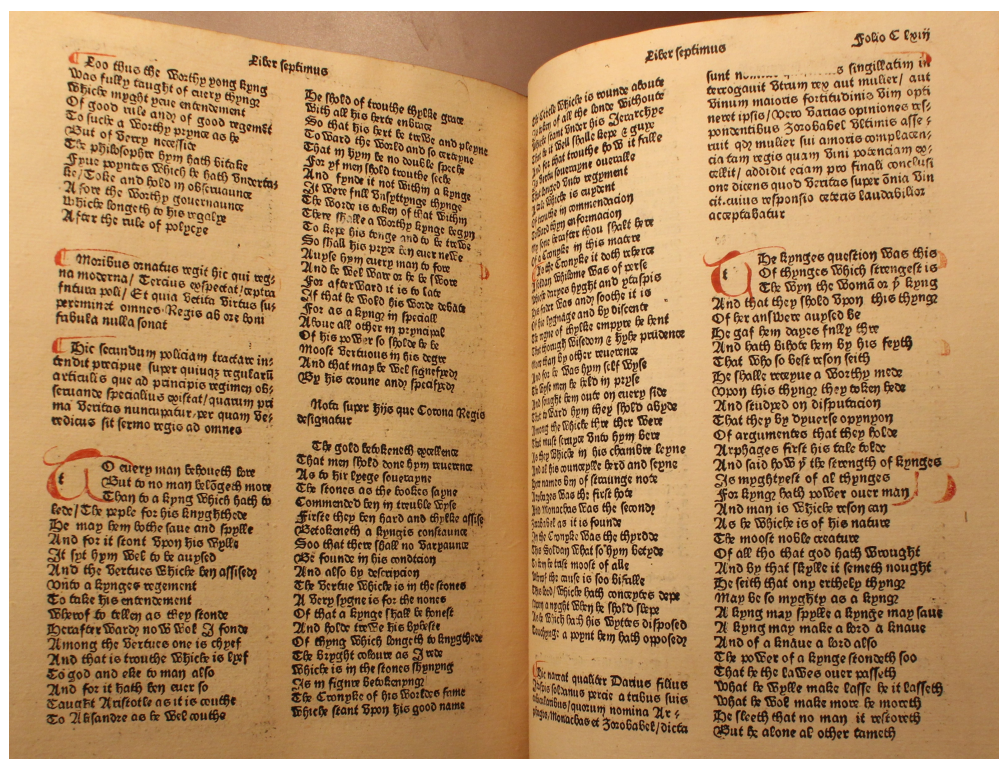 Liber septimus
Loo thus the Worthy yong kyng
Was fully taught of euery thyng
Whiche myght yeue entendement
Of good rule and of good regemēt
To suche a Worthy prynce as he
But of Verry necessite
The philosopher hym hath bitake
Fyue poyntes Whiche he hath Vndertā
ke/Toke and hold in obseruaunce
A fore the Worthy gouernaunce
Whiche longeth to his regalye
After the rule of polycye
Moribus ornatus regit hic qui reg-
na moderna/ Tercius expectat/ceptra
futura poli/ Et quia Vetita Virtus su-
pereminet omnes Regis ab ore boni
fabula nulla sonat
Hic secundum policiam tractare in-
tendit precipue super quinqz regularū
articulis que ad principis regimen ob-
seruande specialius existat/quarum pri
ma Veritas nuncupatur/per quam Ve-
redicus sit sermo regis ad omnes
TO euery man behoueth lore
But to no man belogeth more
Than to a kyng Whiche hath to
lede/The peple for his knyghthede
He may hem bothe saue and spylle
And for it stont Vpon his Wylle
It syt hym Wel to be auysed
And the Vertues Whiche ben assised
Vnto a kynges regement
To take his entendement
Wherof to tellen as they stonde
Herafter Wardy noW Wol I fonde
Among the Vertues one is chyef
And that is trouthe Whiche is lyef
To god and eke to man also
And for it hath ben euer so
Taught Aristotle as it is couthe
To Alisandre as he Wel couthe
He shold of trouthe thylke grace
With all his herte enbrace
So that his hert be trewe and pleyne
ToWard the World and so certeyne
That in hym be no double speche
For yf men shold trouthe seche
And fynde it not Within a kynge
It Were full Vnsyttynge thynge
The Worde is token of that Within
There shalle a Worthy kynge begyn
To kepe his tonge and to be treWe
So shall his pryce ben euer neWe
Auyse hym euery man to fore
And be Wel Ware or he be sWore
For afterWard it is to late
If that he Wold his Worde debate
For as a kynge in speciall
Aboue all other in pryncipal
Of his poWer so sholde be be
Moost Vertuous in his degre
And that may be Wel signefyed
By his croune and specifyed
Nota super hijs que Corona Regis
designatur
The gold betokeneth excellence
That men shold done hym reuerence
As to hir lyege souerayne
The stones as the bookes sayne
Commended ben in treuble Wyse
Firste they ben hard and thylke assise
Betokeneth a kyngis constaunce
Soo that there shall no Varyaunce
Be founde in his condicion
And also by descripcion
The Vertue Whiche is in the stones
A Very sygne is for the nones
Of that a kynge shall be honest
And holde treWe his byheste
Of thyng Which longeth to knyghthede
The bryght coloure as I rede
Whiche is in the stones shynyng
Is in figure betokenyng
The Cronyke of his Worldes fame
Whiche stant Vpon his good name
Liber septimus
Folio C lxiij
Cercle Whiche is rounde aboute
token of all the londe Withoute
stant Vnder his Ierarchye
he it Well shalle kepe & guye
And for that trouthe hoW it falle
souerayne oueralle
longed Vnto regyment
tale Whiche is euydent
Of trouthe in commendacion
enformacion
My sone herafter thou shalt here
Of a Cronyke in this matere
the Cronyke it doth reherce
Soldan Whilome Was of perse
Whiche daryes hyght and ytaspis
fader Was and soothe it is
Of his lygnage and by discente
The regne of thylke empyre he hent
thorough Wisedom & hyhe prudence
More than by other reuerence
And for he Was hym self Wyse
The Wyse men he held in pryse
And sought hem oute on euery side
That toWard hym they shold abyde
Among the Whiche thre ther Were
That most seruyce Vnto hym bere
As they Whiche in his chambre leyne
And al his counceylle herd and seyne
Her names ben of straunge note
Arphages Was the first hote
And Monachas Was the second
Zorobabel as it is founde
In the Cronyke Was the thyrdde
This Soldan What so hym betyde
To hem he trist moost of alle
Wherof the cause is soo bifalle
This lord/Which hath conceytes depe
Vpon a nyght When he shold slepe
As he Which hath his Wyttes disposed
Touchynge a poynt hem hath opposed
Hic narrat qualiter Darius filius
Itaspis soldanus percie a tribus suis
cubicularibus/quorum nomina Ar-
phages, Monachas et Zorobabel/dicta
sunt singillatim in
terrogauit Vtrum rex aut mulier/ aut
Vinum maioris fortitudinis Vim opti
neret ipsis/Vero Varias opiniones res-
pondentibus Zorobabel Vltimis asse-
ruit qd mulier sui amoris complacen-
cia tam regis quam Vini potenciam ex-
cellit/ addidit eciam pro finali conclusi
one dicens quod Veritas super ōnia Vin
cit.cuius responsio ceteris laudabilior
acceptabatur
THe kynges question Was this
Of thynges Which strengest is
The Wyn the Womā or yͤ kyng
And that they shold Vpon this thyng
Of her ansWere auysed be
He gaf hem dayes fully thre
And hath bihote hem by his feyth
That Who so best reson seith
He shalle receyue a Worthy mede
Vpon this thynge they token hede
And stüdyed on disputacion
That they by dyuerse oppynyon
Of argumentes that they holde
Arphages first his tale tolde
And said hoW yͤ the strength of kynges
Is myghtyest of al thynges
For kynge hath poWer ouer man
And man is Whiche reson can
As he Whiche is of his nature
The moost noble creature
Of all tho that god hath Wrought
And by that skylle it semeth nought
He seith that ony erthely thyng
May be so myghty as a kyng
A kyng may spylle a kynge may saue
A kyng may make a lord a knaue
And of a knaue a lord also
The poWer of a kynge stondeth soo
That he the laWes ouer passeth
What he Wylle make lasse he it lasseth
What he Wol make more he moreth
He sleeth that no man it restoreth
But he alone al other tameth